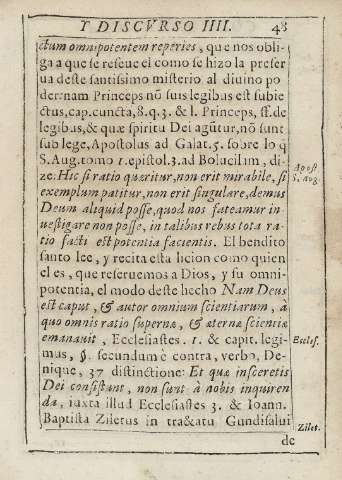 Y DISCVRSO IIII. 48
ctum omnipotentem reperies, que nos obli-
ga a que se reserue el como se hizo la preser
ua deste santissimo misterio al diuino po
der: nam Princeps nō suis legibus est subie
ctus, cap. cuncta, 8. q. 3. & l. Princeps, ff. de
legibus, & quæ spiritu Dei agūtur, nō sunt
sub lege, Apostolus ad Galat. 5. sobre lo q̃
S. Aug. tomo 1. epistol. 3. ad Bolucilm, di-
ze: Hic si ratio quæritur, non erit mirabile, si
exemplum patitur, non erit singulare, demus
Deum aliquid posse, quod nos fateamur in-
uestigare non posse, in talibus rebus tota ra-
tio facti est potentia facientis. El bendito
santo lee, y recita esta licion como quien
el es, que reseruemos a Dios, y su omni-
potencia, el modo deste hecho Nam Deus
est caput, & autor omnium scientiarum, à
quo omnis ratio supernæ, & æternæ scientiæ
emanauit, Ecclesiastes. 1. & capit. legi-
mus, §. secundum è contra, verbo, De-
nique, 37 distinctione: Et quæ insceretis
Dei consistunt, non sunt à nobis inquiren
da, iuxta illud Ecclesiastes 3. & Ioann.
Baptista Ziletus in tractatu Gundisalui
de
Apost
S. Aug.
Eccles.
Zilet.